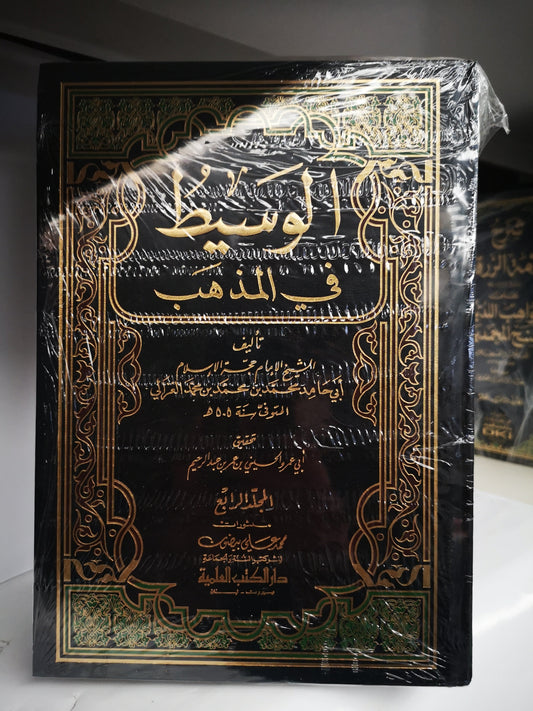 الوسيط
في المذهب
تأليف
الشيخ الإمام حجة الإسلام
أبي حامد محمد بن محمد بن محمد الغزالي
المتوفى سنة ٥٠٥ هـ
تحقيق
أبي عمرو الحسيني بن عمر بن عبد الرحيم
المجلد الرابع
منشورات
محمد علي بيضون
لنشر كتب السنة والجماعة
دار الكتب العلمية
بيروت - لبنان
شرح